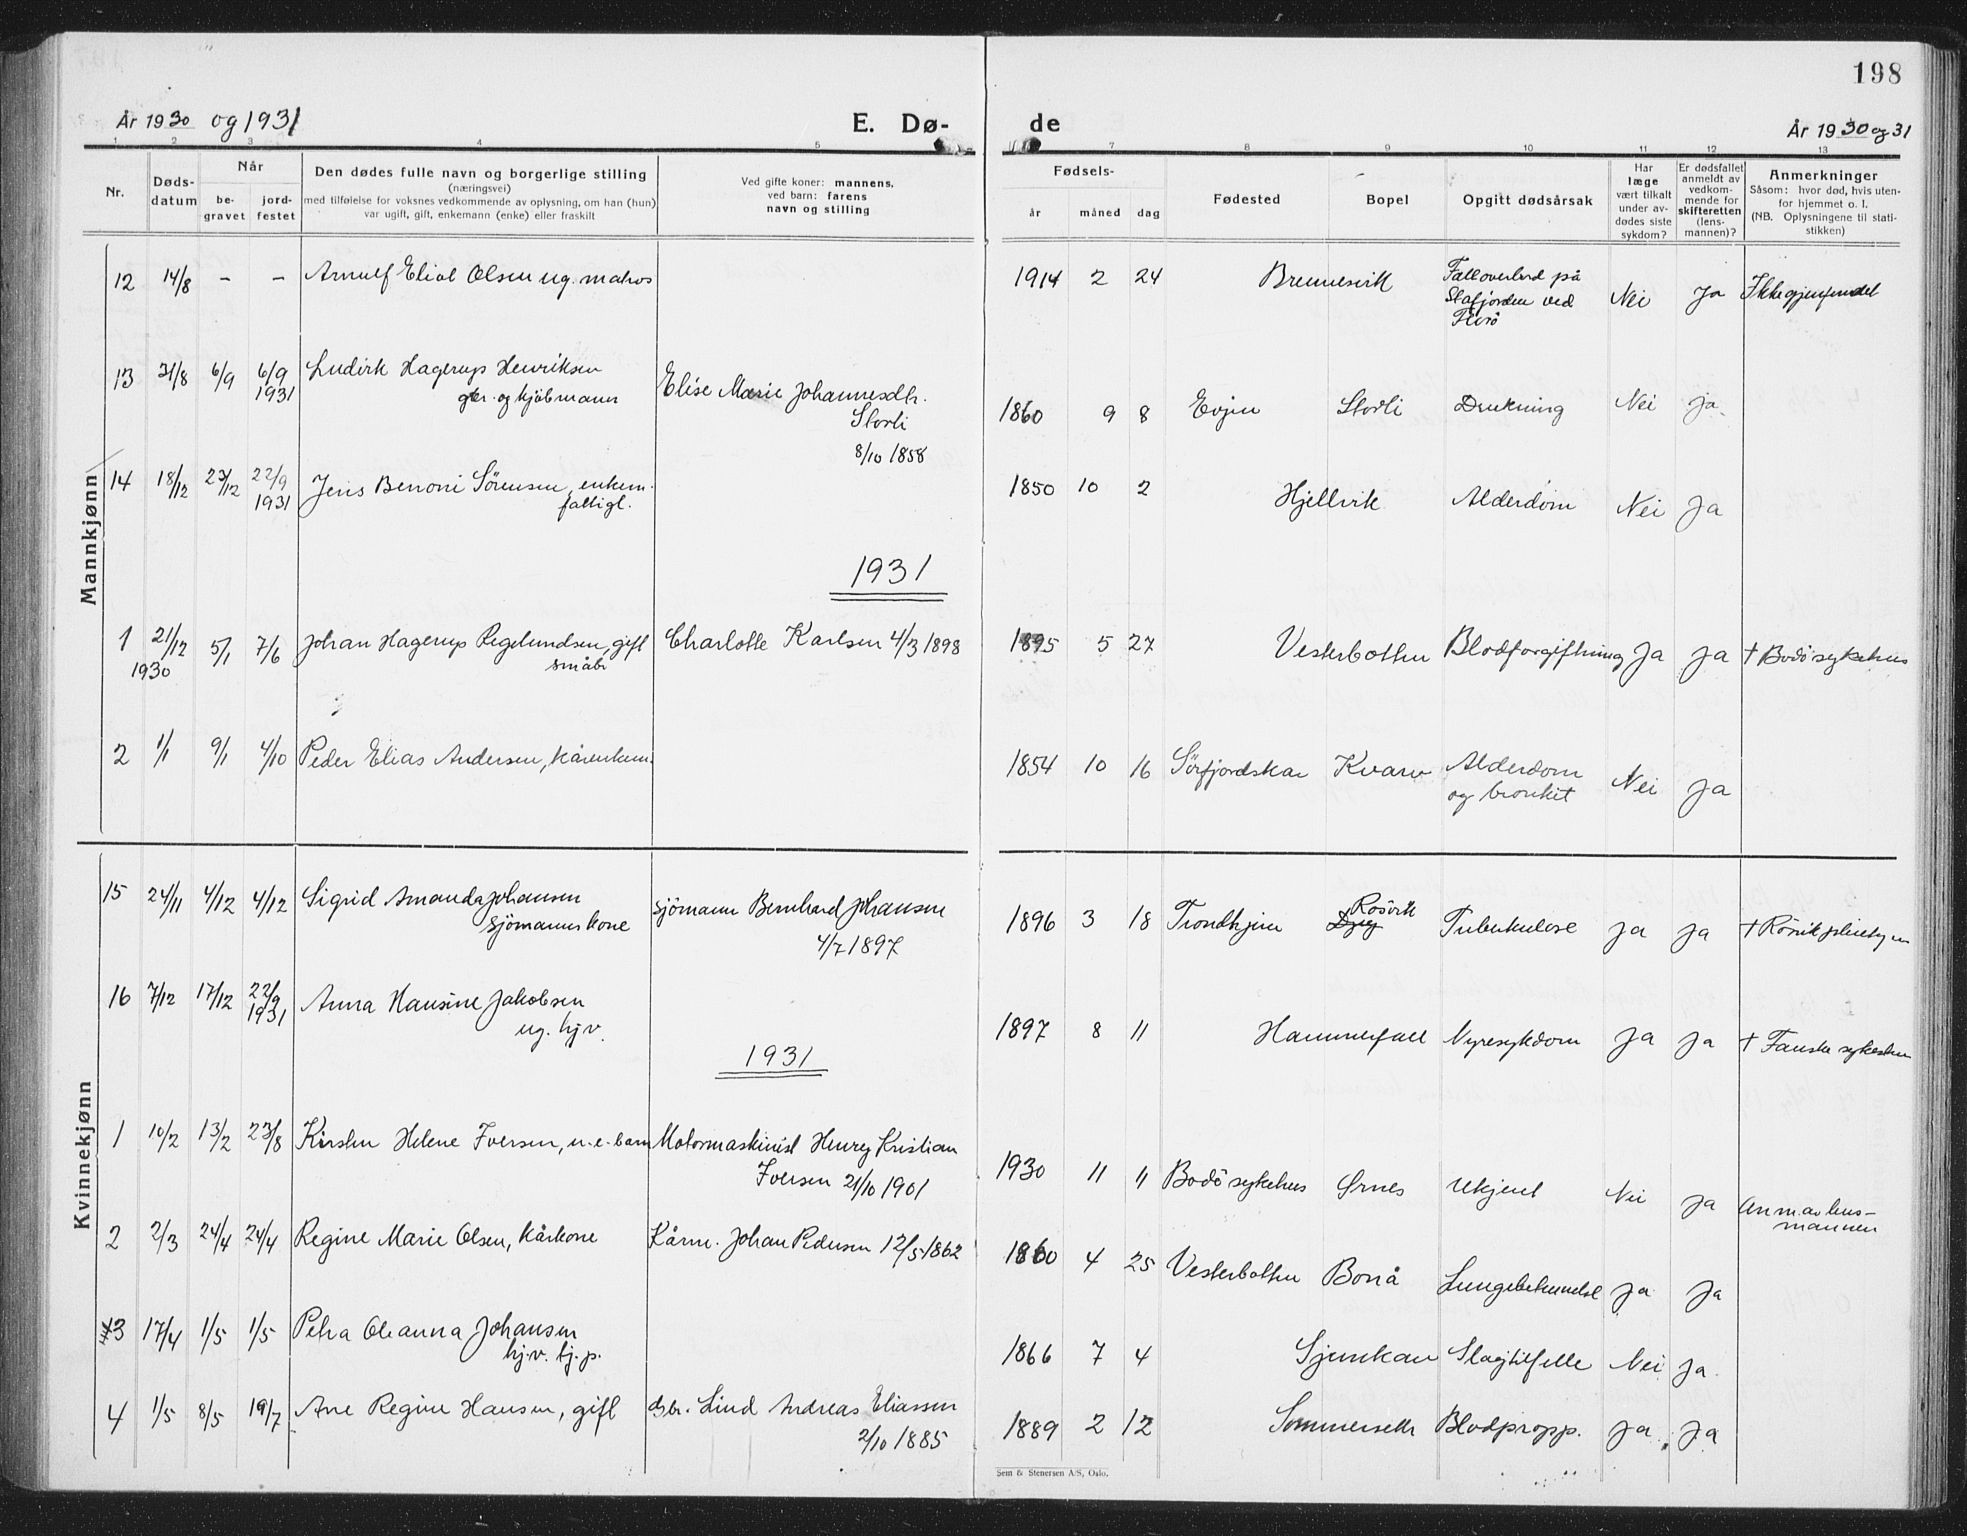 198
År 1930 og 1931
E. Dø- de
År 1930 og 31
1 2 3 4 5 7 8 9 10 11 12 13
Nr.
Døds-
datum
Når
be-
gravet
jord-
festet
Den dødes fulle navn og borgerlige stilling
(næringsvei)
med tilføielse for voksnes vedkommende av oplysning, om han (hun)
var ugift, gift, enkemann (enke) eller fraskilt
Ved gifte koner: mannens,
ved barn: farens
navn og stilling
Fødsels-
år måned dag
Fødested
Bopel
Opgitt dødsårsak
Har
læge
vært tilkalt
under av-
dødes siste
sykdom?
Er dødsfallet
anmeldt av
vedkom-
mende for
skifteretten
(lens-
mannen)?
Anmerkninger
Såsom: hvor død, hvis uten-
for hjemmet o. l.
(NB. Oplysningene til stati-
stikken)
Mannkjønn
12 14/8 – – Arnulf Eliot Olsen ug. matros 1914 2 24 Brennesvik Fall overbord på
Stafjorden ved
Florö
Nei Ja Ikke gjenfundet
13 31/8 6/9 6/9
1931
Ludvik Hagerup Henriksen
gbr. og kjöbmann
Elise Marie Johannesdtr.
Storli
8/10 1858
1860 9 8 Evjen Storli Drukning Nei ja
14 18/12 23/12 22/9
1931
Jens Benoni Sörensen, enkem.
fattigl.
1850 10 2 Hjellvik Alderdom Nei Ja
1931
1 21/12
1930
5/1 7/6 Johan Hagerup Regelundsen, gift
småbr
Charlotte Karlsen 4/3 1898
1895 5 27 Vesterbotten Blodforgiftning Ja Ja † Bodö sykehus
2 1/1 9/1 4/10 Peder Elias Andersen, kårenkem. 1854 10 16 Sörfjordskar Kvarv Alderdom
og bronkit
Nei Ja
Kvinnekjønn
15 24/11 4/12 4/12 Sigrid Amanda Johansen
sjömannskone
sjömann Bernhard Johansen
4/7 1897
1896 3 18 Trondhjem Rösvik
Tuberkulose Ja Ja
16 7/12 17/12 22/9
1931
Anna Hansine Jakobsen
ug. hj.v.
1897 8 11 Hammerfall Nyresykdom Ja Ja † Fauske sykestue
1931
1 10/2 13/2 23/8 Kirsten Helene Iversen, u.e. barn Motormaskinist Henry Kristian
Iversen 21/10 1901
1930 11 11 Bodö sykehus Ørnes Ukjent Nei Ja Anm. av lens-
mannen
2 2/3 24/4 24/4 Regine Marie Olsen, kårkone Kårm. Johan Pedersen 12/5 1862
1860 4 25 Vesterbotten Bonå Lungebetendelse Ja Ja
3 17/4 1/5 1/5 Petra Oleanna Johansen
hj.v. tj.p.
1866 7 4 Sjunkan Slagtilfelle Nei Ja.
4 1/5 8/5 19/7 Ane Regine Hansen, gift Gbr. Lind Andreas Eliassen
2/10 1885
1889 2 12 Sommerseth Blodpropp. Ja Ja
Sem & Stenersen A/S, Oslo.